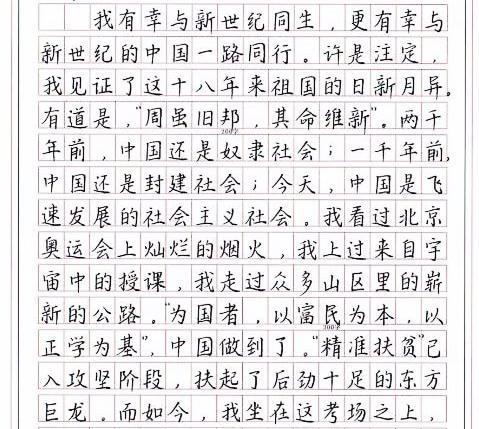 我有幸与新世纪同生，更有幸与
新世纪的中国一路同行。许是注定，
我见证了这十八年来祖国的日新月异。
有道是，“周虽旧邦，其命维新”。两千
200字
年前，中国还是奴隶社会；一千年前，
中国还是封建社会；今天，中国是飞
速发展的社会主义社会。我看过北京
奥运会上灿烂的烟火，我上过来自宇
宙中的授课，我走过众多山区里的崭
新的公路。“为国者，以富民为本，以
300字
正学为基”，中国做到了。“精准扶贫”已
入攻坚阶段，扶起了后劲十足的东方
巨龙。而如今，我坐在这考场之上，